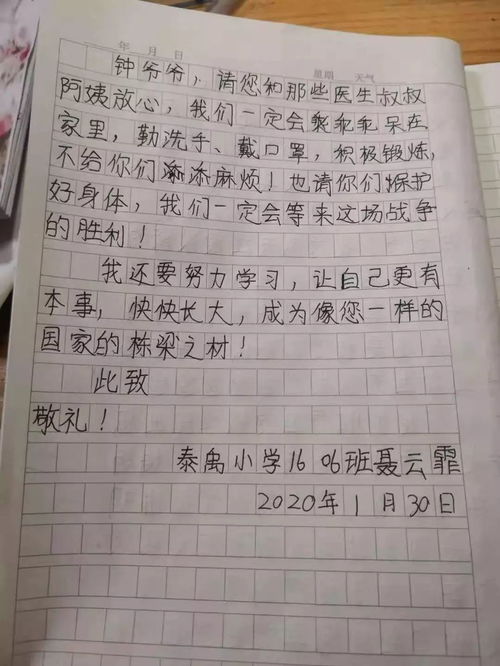 年 月 日 星期 天气
钟爷爷，请您和那些医生叔叔
阿姨放心，我们一定会乖乖呆在
家里，勤洗手、戴口罩，积极锻炼，
不给你们添麻烦！也请你们保护
好身体，我们一定会等来这场战争
的胜利！
我还要努力学习，让自己更有
本事，快快长大，成为像您一样的
国家的栋梁之材！
此致
敬礼！
泰禹小学1606班聂云霏
2020年1月30日